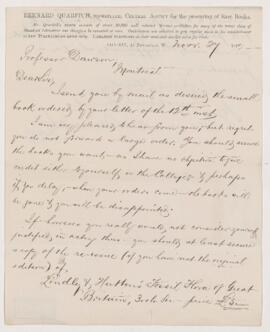 BERNARD QUARITCH, BOOKSELLER, GENERAL AGENCY for the procuring of Rare Books.
Nov. 27
Professor Dawson,
Montreal.
Dear Sir,
I send you by mail as desired the small
book ordered by your letter of the 12th inst.
I am very pleased to hear from you, but regret
you do not forward a large order. You should secure
the books you want, as I have no objection to give
credit either to yourself or the College & perhaps
if you delay, when your orders come the books will
be gone & you will be disappointed.
If however you really would not consider yourself
justified in acting thus you should at least secure
a copy of the re-issue (if you have not the original
edition) of
Lindley & Hutton's Fossil Flora of Great
Britain, 3 vols 8vo price